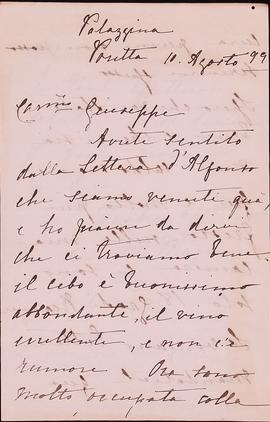 Palazzina
Poretta 10. Agosto 99
Carmo Giuseppe
Avrete sentito
dalla Lettera d'Alfonso
che siamo venute quà,
e ho piacere da dirvi
che ci troviamo bene
il cibo è buonissimo
abbondante, il vino
eccellente, e non c'è
rumore Ora sono
molto occupata colla